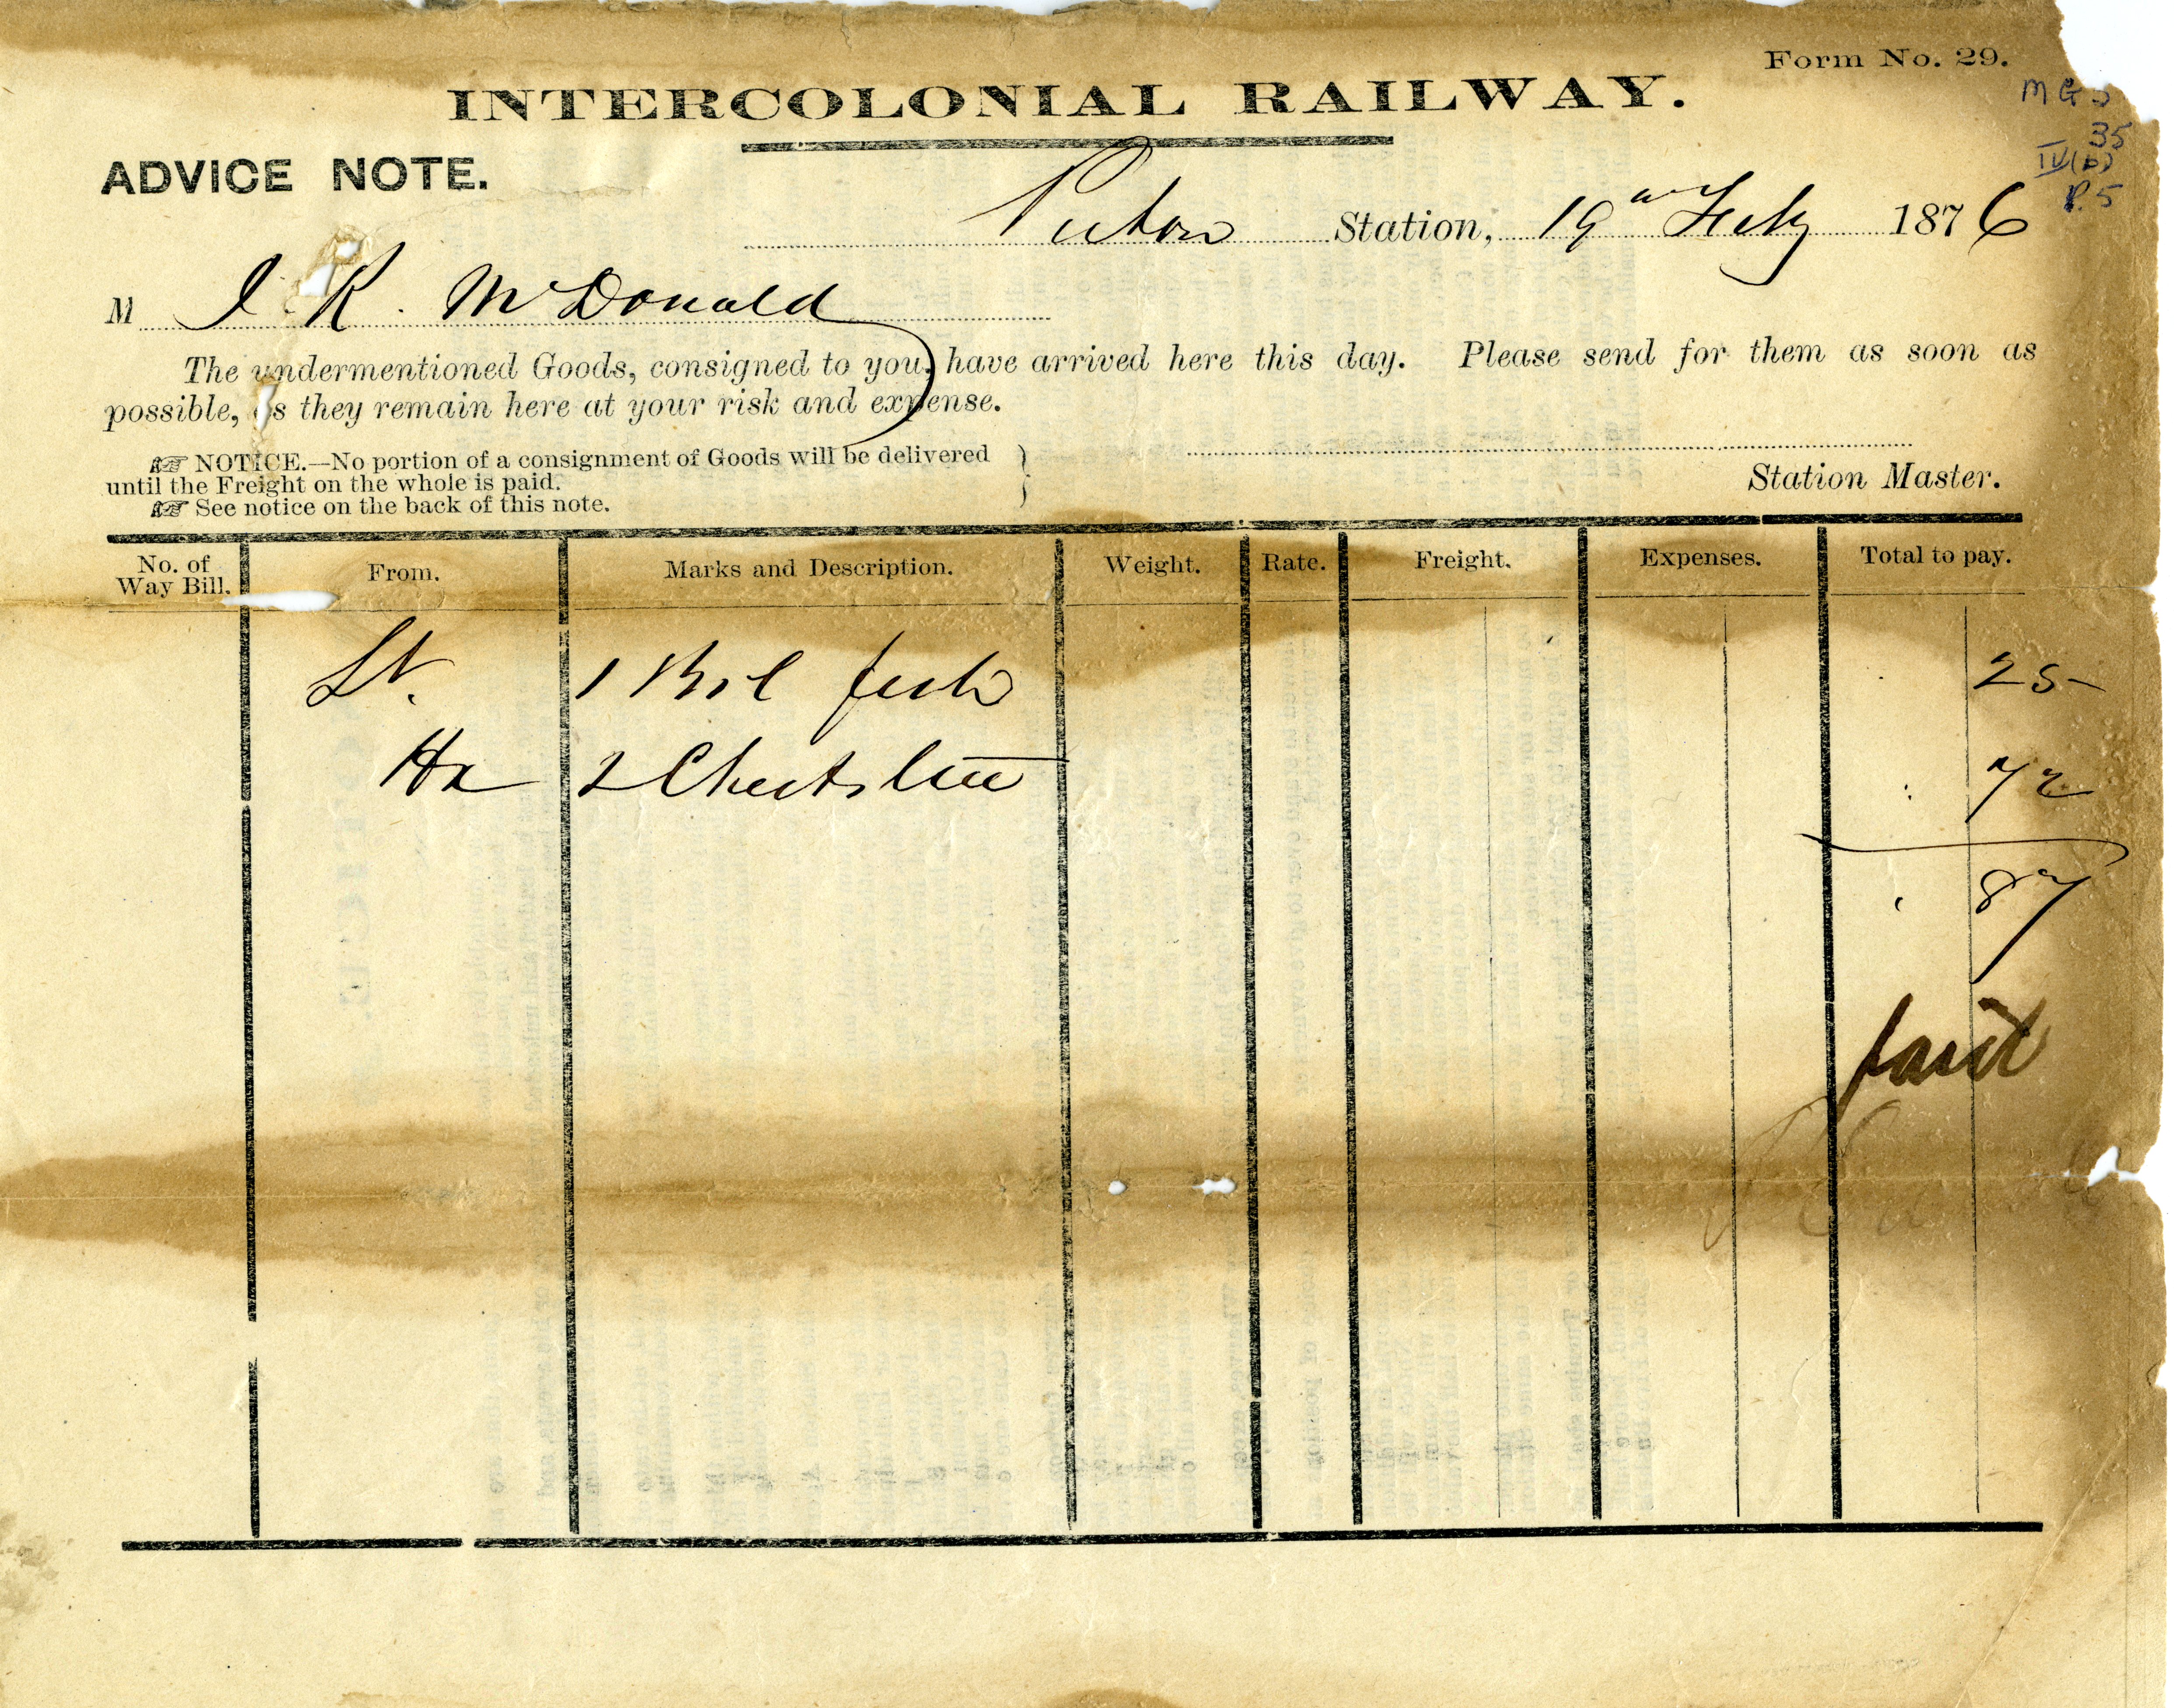 Form No. 29.
INTERCOLONIAL RAILWAY.
MG 3
35
IV(b)
P.5
ADVICE NOTE.
Pictou Station, 19th Feby 1876
M J. R. McDonald
The undermentioned Goods, consigned to you, have arrived here this day. Please send for them as soon as
possible, as they remain here at your risk and expense.
NOTICE.—No portion of a consignment of Goods will be delivered
until the Freight on the whole is paid.
See notice on the back of this note.
Station Master.
No. of Way Bill. From. Marks and Description. Weight. Rate. Freight. Expenses. Total to pay.
1 Brl 25
Hx 2 Chests 72
87
paid